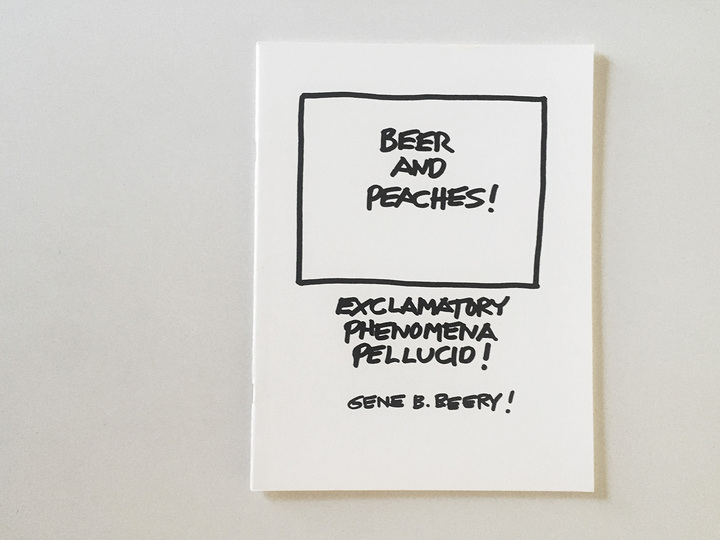 BEER
AND
PEACHES!
EXCLAMATORY
PHENOMENA
PELLUCID!
GENE B. BEERY!